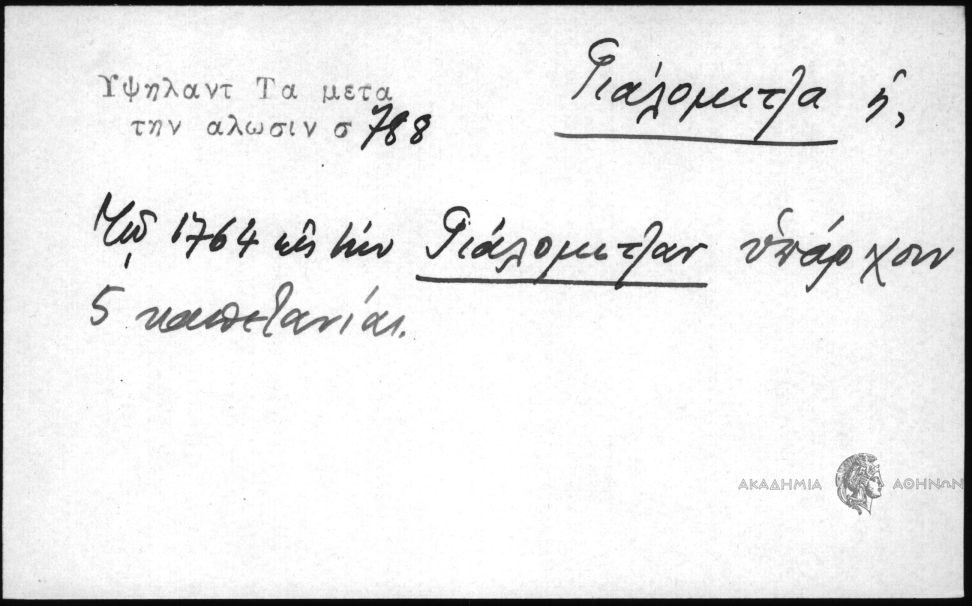 Υψηλαντ Τα μετα
την αλωσιν σ 788
Γιάλομιτζα ἡ,
Τῷ 1764 εἰς τὴν Γιάλομιτζαν ὑπάρχουν
5 καπετανίαι.
ΑΚΑΔΗΜΙΑ ΑΘΗΝΩΝ